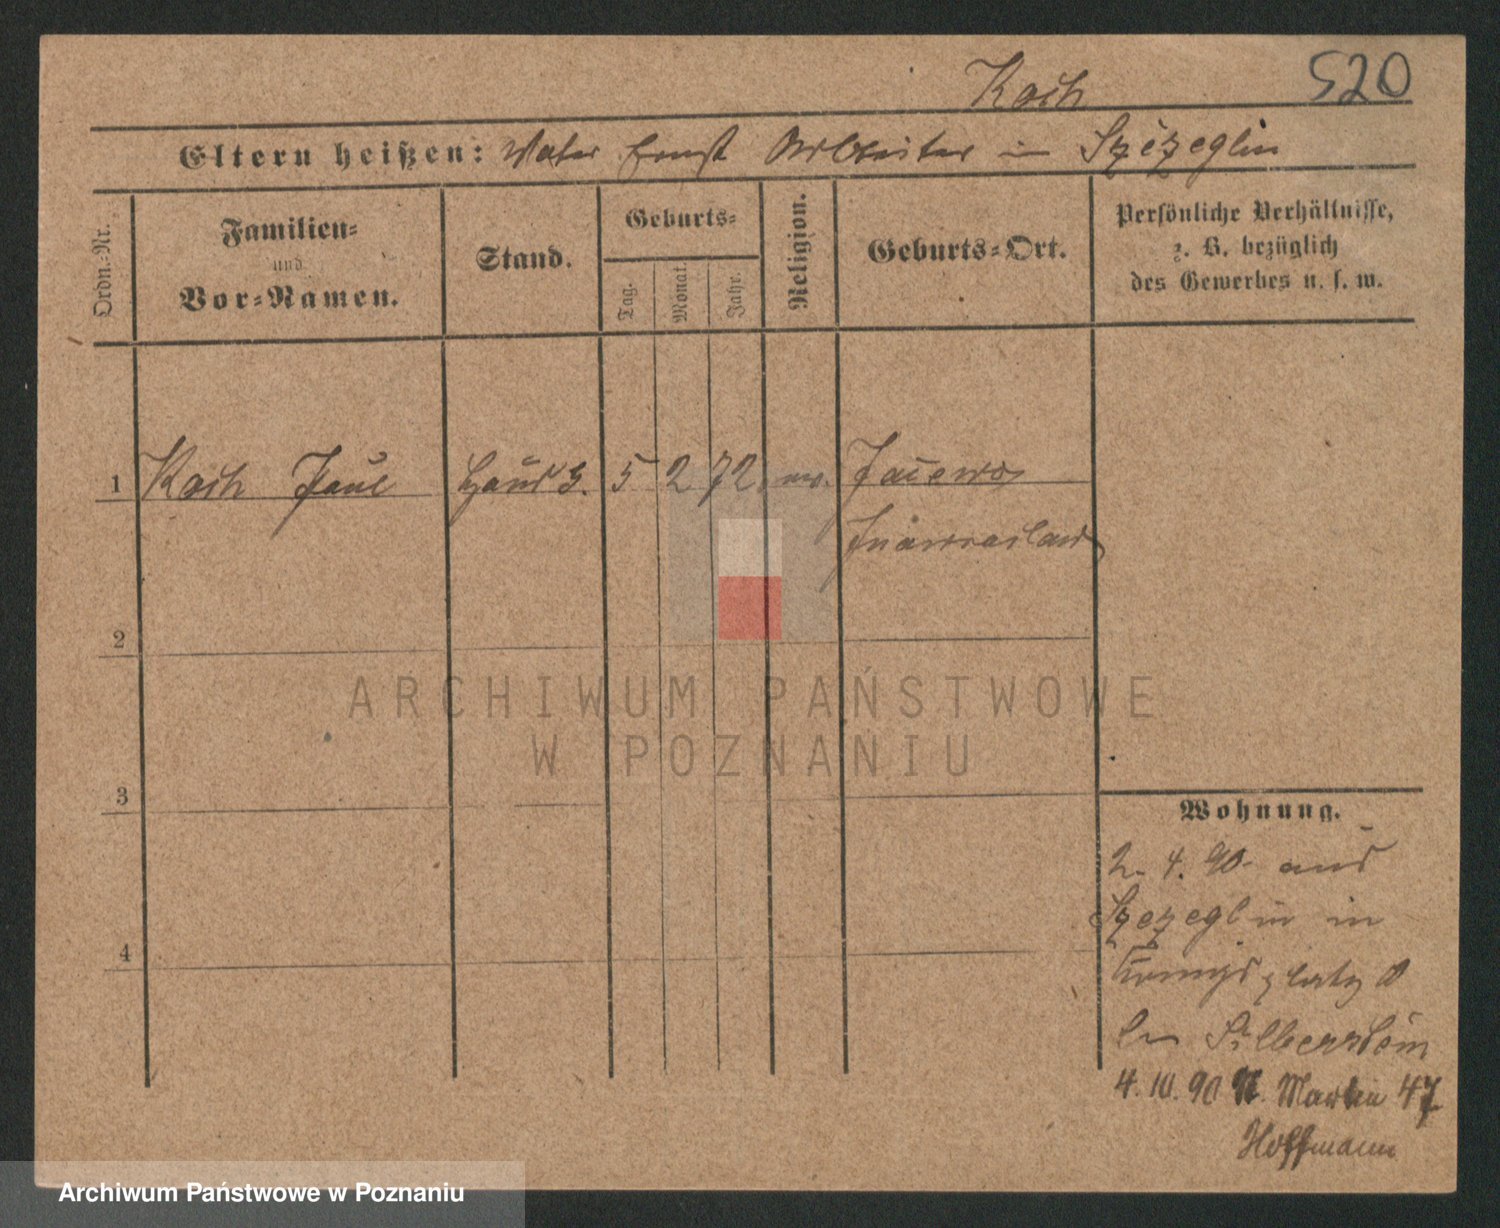 Koch 520
Eltern heißen: Vater Ernst Arbeiter in Szczeglin
Ordn.-Nr.
Familien-
und
Vor-Namen.
Stand.
Geburts-
Tag.
Monat.
Jahr.
Religion.
Geburts-Ort.
Persönliche Verhältnisse,
z. B. bezüglich
des Gewerbes u. s. w.
1 Koch Paul 5 2 72 ev.
Inowraclaw
2
ARCHIWUM PAŃSTWOWE
W POZNANIU
3
4
Wohnung.
2. 4. 90. aus
Szczeglin in
Königsplatz
bei Silberstein
4. 10. 90 St. Martin 47
Hoffmann
Archiwum Państwowe w Poznaniu